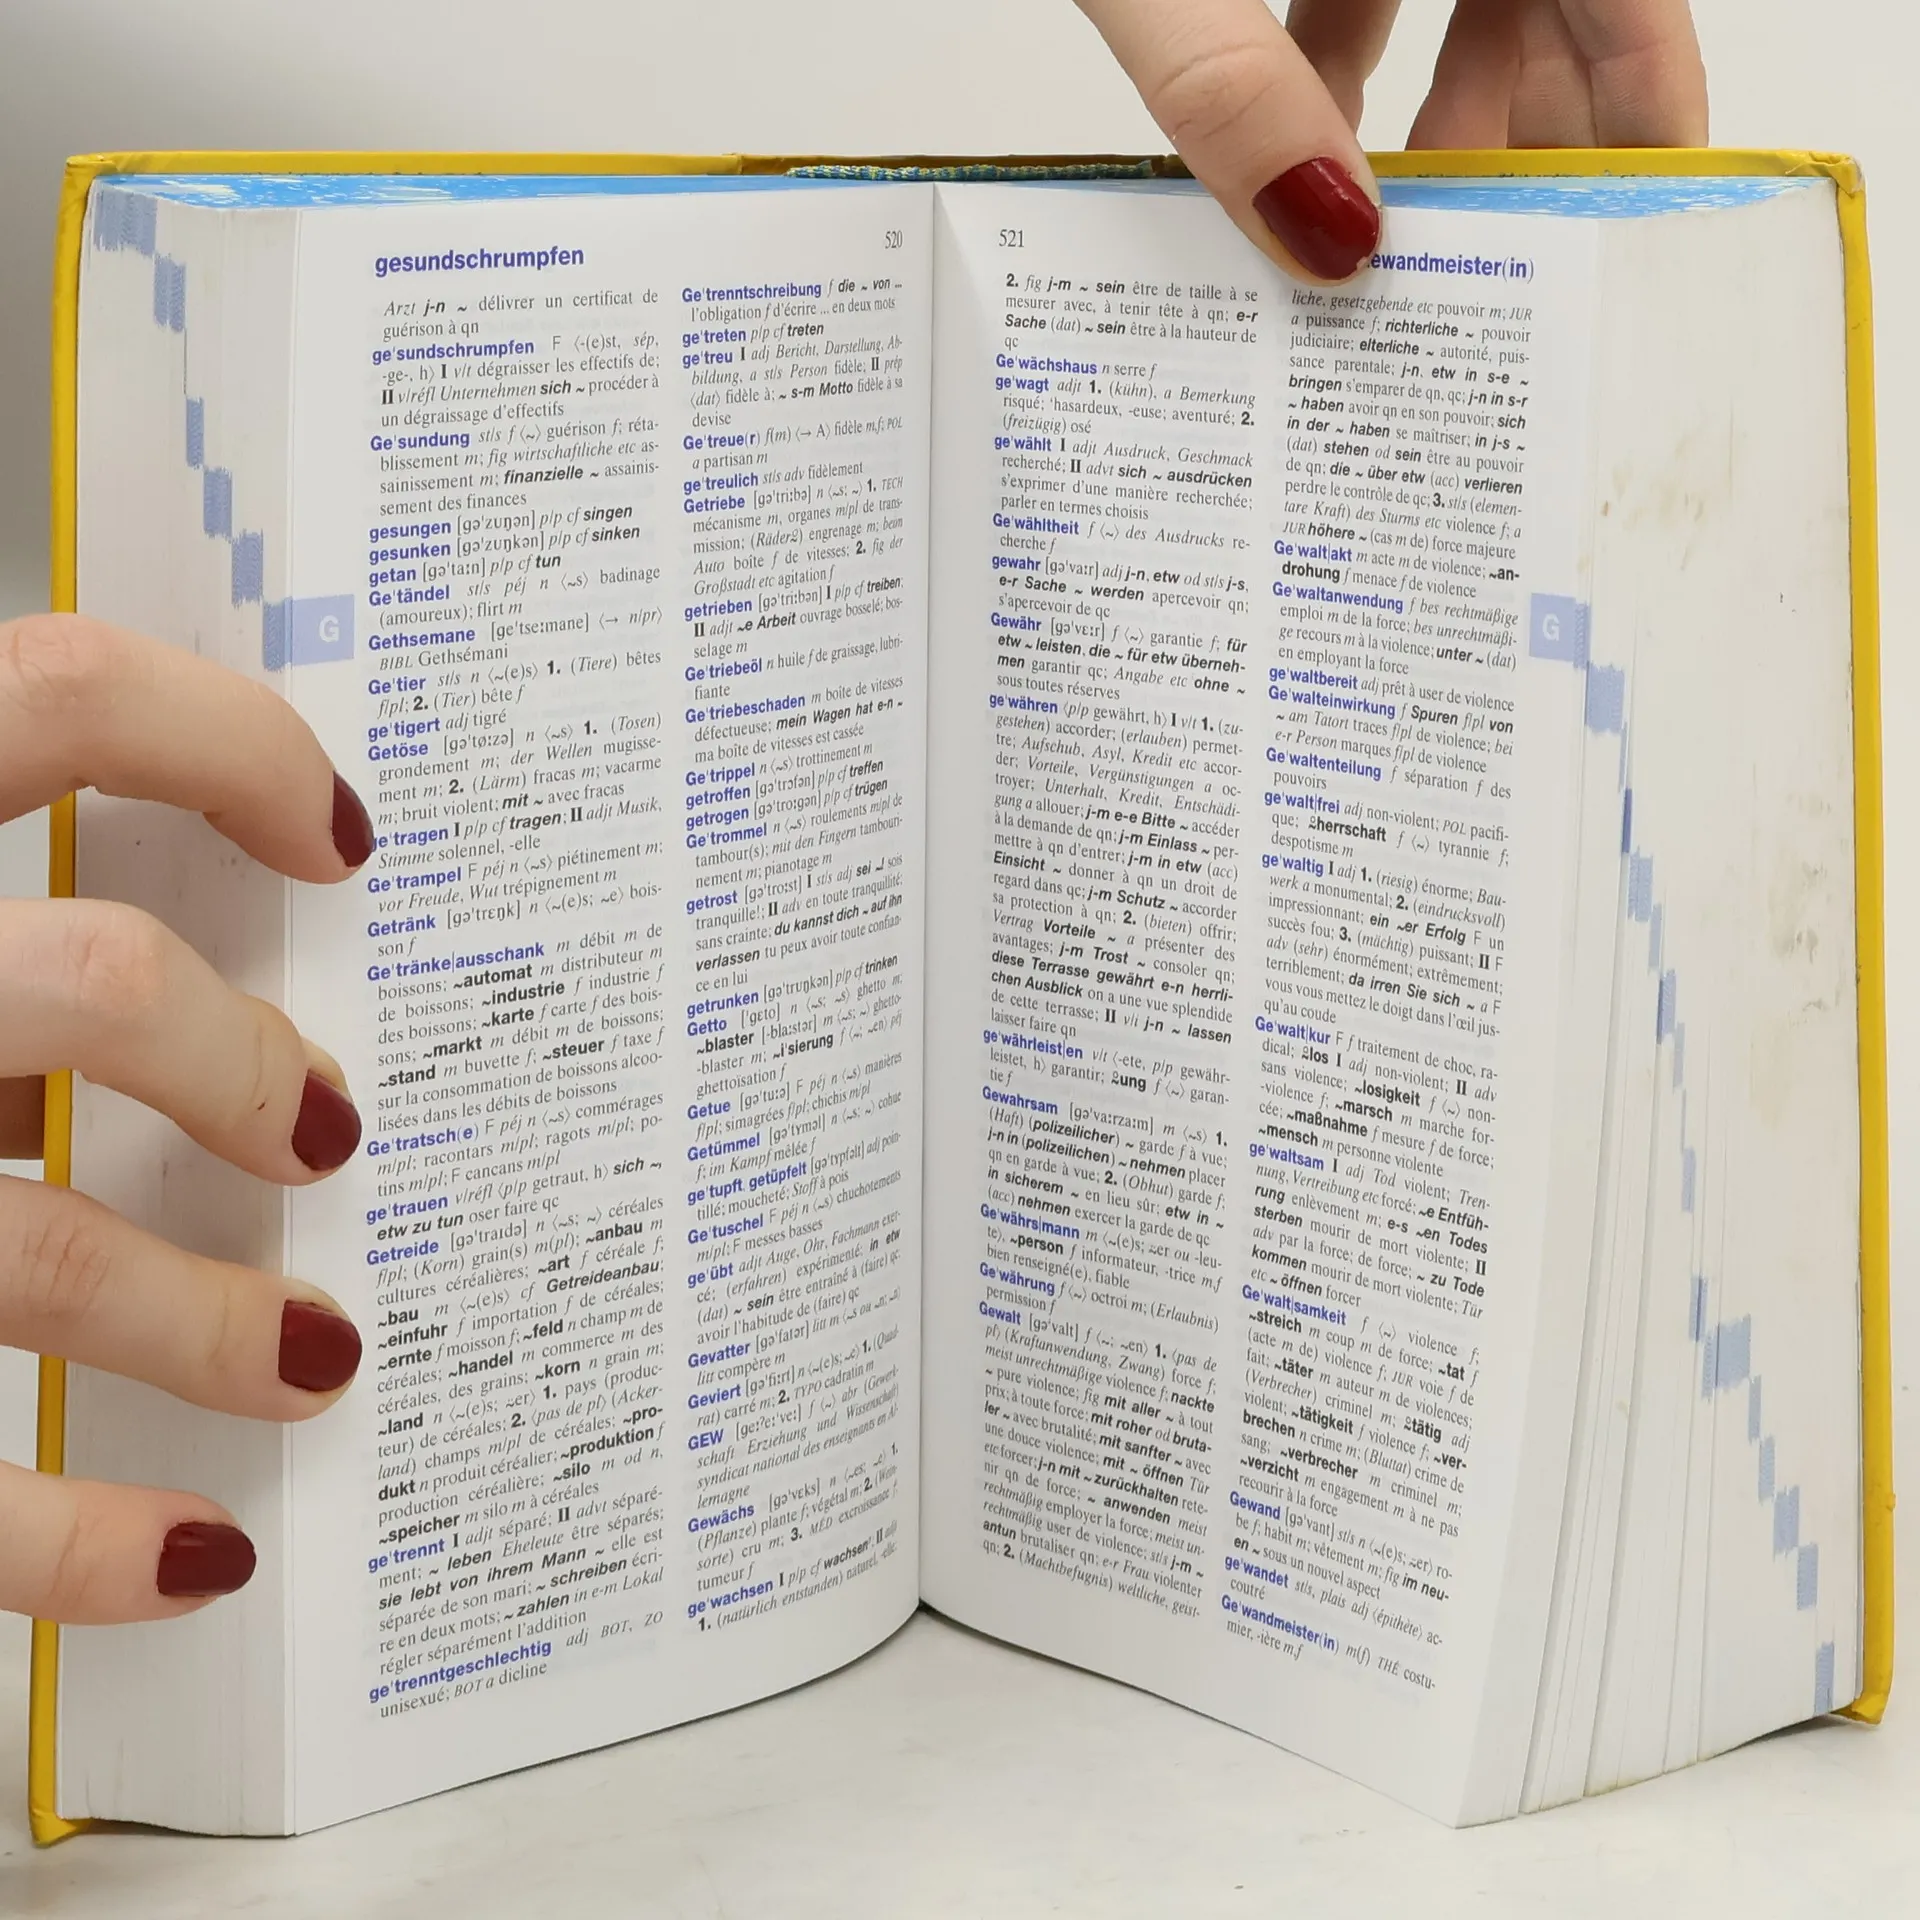 gesundschrumpfen
520
Arzt j-n ~ délivrer un certificat de
guérison à qn
ge'sundschrumpfen F ⟨-(e)st, sép,
-ge-, h⟩ I v/t dégraisser les effectifs de;
II v/réfl Unternehmen sich ~ procéder à
un dégraissage d'effectifs
Ge'sundung st/s f ⟨~⟩ guérison f; réta-
blissement m; fig wirtschaftliche etc as-
sainissement m; finanzielle ~ assainis-
sement des finances
gesungen [gə'zuŋən] p/p cf singen
gesunken [gə'zuŋkən] p/p cf sinken
getan [gə'ta:n] p/p cf tun
Ge'tändel st/s péj n ⟨~s⟩ badinage
(amoureux); flirt m
Gethsemane [ge'tse:mane] ⟨→ n/pr⟩
BIBL Gethsémani
Ge'tier st/s n ⟨~(e)s⟩ 1. (Tiere) bêtes
f/pl; 2. (Tier) bête f
ge'tigert adj tigré
Getöse [gə'tø:zə] n ⟨~s⟩ 1. (Tosen)
grondement m; der Wellen mugisse-
ment m; 2. (Lärm) fracas m; vacarme
m; bruit violent; mit ~ avec fracas
ge'tragen I p/p cf tragen; II adjt Musik,
Stimme solennel, -elle
Ge'trampel F péj n ⟨~s⟩ piétinement m;
vor Freude, Wut trépignement m
Getränk [gə'trɛŋk] n ⟨~(e)s; ~e⟩ bois-
son f
Ge'tränke|ausschank m débit m de
boissons; ~automat m distributeur m
de boissons; ~industrie f industrie f
des boissons; ~karte f carte f des bois-
sons; ~markt m débit m de boissons;
~stand m buvette f; ~steuer f taxe f
sur la consommation de boissons alcoo-
lisées dans les débits de boissons
Ge'tratsch(e) F péj n ⟨~s⟩ commérages
m/pl; racontars m/pl; ragots m/pl; po-
tins m/pl; F cancans m/pl
ge'trauen v/réfl ⟨p/p getraut, h⟩ sich ~,
etw zu tun oser faire qc
Getreide [gə'traɪdə] n ⟨~s; ~⟩ céréales
f/pl; (Korn) grain(s) m(pl); ~anbau m
cultures céréalières; ~art f céréale f;
~bau m ⟨~(e)s⟩ cf Getreideanbau;
~einfuhr f importation f de céréales;
~ernte f moisson f; ~feld n champ m de
céréales; ~handel m commerce m des
céréales, des grains; ~korn n grain m;
~land n ⟨~(e)s; ⸚er⟩ 1. pays (produc-
teur) de céréales; 2. ⟨pas de pl⟩ (Acker-
land) champs m/pl de céréales; ~pro-
dukt n produit céréalier; ~produktion f
production céréalière; ~silo m od n,
~speicher m silo m à céréales
ge'trennt I adjt séparé; II advt séparé-
ment; ~ leben Eheleute être séparés;
sie lebt von ihrem Mann ~ elle est
séparée de son mari; ~ schreiben écri-
re en deux mots; ~ zahlen in e-m Lokal
régler séparément l'addition
ge'trenntgeschlechtig adj BOT, ZO
unisexué; BOT a dicline
Ge'trenntschreibung f die ~ von ...
l'obligation f d'écrire ... en deux mots
ge'treten p/p cf treten
ge'treu I adj Bericht, Darstellung, Ab-
bildung, a st/s Person fidèle; II prép
⟨dat⟩ fidèle à; ~ s-m Motto fidèle à sa
devise
Ge'treue(r) f(m) ⟨→ A⟩ fidèle m,f; POL
a partisan m
ge'treulich st/s adv fidèlement
Getriebe [gə'tri:bə] n ⟨~s; ~⟩ 1. TECH
mécanisme m, organes m/pl de trans-
mission; (Räder2) engrenage m; beim
Auto boîte f de vitesses; 2. fig der
Großstadt etc agitation f
getrieben [gə'tri:bən] I p/p cf treiben;
II adjt ~e Arbeit ouvrage bosselé; bos-
selage m
Ge'triebeöl n huile f de graissage, lubri-
fiante
Ge'triebeschaden m boîte de vitesses
défectueuse; mein Wagen hat e-n ~
ma boîte de vitesses est cassée
Ge'trippel n ⟨~s⟩ trottinement m
getroffen [gə'trɔfən] p/p cf treffen
getrogen [gə'tro:gən] p/p cf trügen
Ge'trommel n ⟨~s⟩ roulements m/pl de
tambour(s); mit den Fingern tambouri-
nement m; pianotage m
getrost [gə'tro:st] I st/s adj sei ~! sois
tranquille!; II adv en toute tranquillité;
sans crainte; du kannst dich ~ auf ihn
verlassen tu peux avoir toute confian-
ce en lui
getrunken [gə'truŋkən] p/p cf trinken
Getto ['gɛto] n ⟨~s; ~s⟩ ghetto m;
~blaster [-bla:stər] m ⟨~s; ~⟩ ghetto-
-blaster m; ~i'sierung f ⟨~; ~en⟩ péj
ghettoïsation f
Getue [gə'tu:ə] F péj n ⟨~s⟩ manières
f/pl; simagrées f/pl; chichis m/pl
Getümmel [gə'tʏməl] n ⟨~s; ~⟩ cohue
f; im Kampf mêlée f
ge'tupft, getüpfelt [gə'tʏpfəlt] adj poin-
tillé; moucheté; Stoff à pois
Ge'tuschel F péj n ⟨~s⟩ chuchotements
m/pl; F messes basses
ge'übt adjt Auge, Ohr, Fachmann exer-
cé; (erfahren) expérimenté; in etw
(dat) ~ sein être entraîné à (faire) qc,
avoir l'habitude de (faire) qc
Gevatter [gə'fatər] litt m ⟨~s ou ~n; ~n⟩
litt compère m
Geviert [gə'fi:rt] n ⟨~(e)s; ~e⟩ 1. (Quad-
rat) carré m; 2. TYPO cadratin m
GEW [ge:ʔe:'ve:] f ⟨~⟩ abr (Gewerk-
schaft Erziehung und Wissenschaft)
syndicat national des enseignants en Al-
lemagne
Gewächs [gə'vɛks] n ⟨~es; ~e⟩ 1.
(Pflanze) plante f; végétal m; 2. (Wein-
sorte) cru m; 3. MÉD excroissance f,
tumeur f
ge'wachsen I p/p cf wachsen¹; II adjt
1. (natürlich entstanden) naturel, -elle;
G
521
ewandmeister(in)
2. fig j-m ~ sein être de taille à se
mesurer avec, à tenir tête à qn; e-r
Sache (dat) ~ sein être à la hauteur de
qc
Ge'wächshaus n serre f
ge'wagt adjt 1. (kühn), a Bemerkung
risqué; 'hasardeux, -euse; aventuré; 2.
(freizügig) osé
ge'wählt I adjt Ausdruck, Geschmack
recherché; II advt sich ~ ausdrücken
s'exprimer d'une manière recherchée;
parler en termes choisis
Ge'wähltheit f ⟨~⟩ des Ausdrucks re-
cherche f
gewahr [gə'va:r] adj j-n, etw od st/s j-s,
e-r Sache ~ werden apercevoir qn;
s'apercevoir de qc
Gewähr [gə'vɛ:r] f ⟨~⟩ garantie f; für
etw ~ leisten, die ~ für etw überneh-
men garantir qc; Angabe etc ohne ~
sous toutes réserves
ge'währen ⟨p/p gewährt, h⟩ I v/t 1. (zu-
gestehen) accorder; (erlauben) permet-
tre; Aufschub, Asyl, Kredit etc accor-
der; Vorteile, Vergünstigungen a oc-
troyer; Unterhalt, Kredit, Entschädi-
gung a allouer; j-m e-e Bitte ~ accéder
à la demande de qn; j-m Einlass ~ per-
mettre à qn d'entrer; j-m in etw (acc)
Einsicht ~ donner à qn un droit de
regard dans qc; j-m Schutz ~ accorder
sa protection à qn; 2. (bieten) offrir;
Vertrag Vorteile ~ a présenter des
avantages; j-m Trost ~ consoler qn;
diese Terrasse gewährt e-n herrli-
chen Ausblick on a une vue splendide
de cette terrasse; II v/i j-n ~ lassen
laisser faire qn
ge'währleist|en v/t ⟨-ete, p/p gewähr-
leistet, h⟩ garantir; 2ung f ⟨~⟩ garan-
tie f
Gewahrsam [gə'va:rza:m] m ⟨~s⟩ 1.
(Haft) (polizeilicher) ~ garde f à vue;
j-n in (polizeilichen) ~ nehmen placer
qn en garde à vue; 2. (Obhut) garde f;
in sicherem ~ en lieu sûr; etw in ~
(acc) nehmen exercer la garde de qc
Ge'währs|mann m ⟨~(e)s; ⸚er ou -leu-
te⟩, ~person f informateur, -trice m,f
bien renseigné(e), fiable
Ge'währung f ⟨~⟩ octroi m; (Erlaubnis)
permission f
Gewalt [gə'valt] f ⟨~; ~en⟩ 1. ⟨pas de
pl⟩ (Kraftanwendung, Zwang) force f;
meist unrechtmäßige violence f; nackte
~ pure violence; fig mit aller ~ à tout
prix; à toute force; mit roher od bruta-
ler ~ avec brutalité; mit sanfter ~ avec
une douce violence; mit ~ öffnen Tür
etc forcer; j-n mit ~ zurückhalten rete-
nir qn de force; ~ anwenden meist
rechtmäßig employer la force; meist un-
rechtmäßig user de violence; st/s j-m ~
antun brutaliser qn; e-r Frau violenter
qn; 2. (Machtbefugnis) weltliche, geist-
liche, gesetzgebende etc pouvoir m; JUR
a puissance f; richterliche ~ pouvoir
judiciaire; elterliche ~ autorité, puis-
sance parentale; j-n, etw in s-e ~
bringen s'emparer de qn, qc; j-n in s-r
~ haben avoir qn en son pouvoir; sich
in der ~ haben se maîtriser; in j-s ~
(dat) stehen od sein être au pouvoir
de qn; die ~ über etw (acc) verlieren
perdre le contrôle de qc; 3. st/s (elemen-
tare Kraft) des Sturms etc violence f; a
JUR höhere ~ (cas m de) force majeure
Ge'walt|akt m acte m de violence; ~an-
drohung f menace f de violence
Ge'waltanwendung f bes rechtmäßige
emploi m de la force; bes unrechtmäßi-
ge recours m à la violence; unter ~ (dat)
en employant la force
ge'waltbereit adj prêt à user de violence
Ge'walteinwirkung f Spuren f/pl von
~ am Tatort traces f/pl de violence; bei
e-r Person marques f/pl de violence
Ge'waltenteilung f séparation f des
pouvoirs
ge'walt|frei adj non-violent; POL pacifi-
que; 2herrschaft f ⟨~⟩ tyrannie f;
despotisme m
ge'waltig I adj 1. (riesig) énorme; Bau-
werk a monumental; 2. (eindrucksvoll)
impressionnant; ein ~er Erfolg F un
succès fou; 3. (mächtig) puissant; II F
adv (sehr) énormément; extrêmement;
terriblement; da irren Sie sich ~ a F
vous vous mettez le doigt dans l'œil jus-
qu'au coude
Ge'walt|kur F f traitement de choc, ra-
dical; 2los I adj non-violent; II adv
sans violence; ~losigkeit f ⟨~⟩ non-
-violence f; ~marsch m marche for-
cée; ~maßnahme f mesure f de force;
~mensch m personne violente
ge'waltsam I adj Tod violent; Tren-
nung, Vertreibung etc forcé; ~e Entfüh-
rung enlèvement m; e-s ~en Todes
sterben mourir de mort violente; II
adv par la force; de force; ~ zu Tode
kommen mourir de mort violente; Tür
etc ~ öffnen forcer
Ge'walt|samkeit f ⟨~⟩ violence f;
~streich m coup m de force; ~tat f
(acte m de) violence f; JUR voie f de
fait; ~täter m auteur m de violences;
(Verbrecher) criminel m; 2tätig adj
violent; ~tätigkeit f violence f; ~ver-
brechen n crime m; (Bluttat) crime de
sang; ~verbrecher m criminel m;
~verzicht m engagement m à ne pas
recourir à la force
Gewand [gə'vant] st/s n ⟨~(e)s; ⸚er⟩ ro-
be f; habit m; vêtement m; fig im neu-
en ~ sous un nouvel aspect
ge'wandet st/s, plais adj ⟨épithète⟩ ac-
coutré
Ge'wandmeister(in) m(f) THÉ costu-
mier, -ière m,f
G